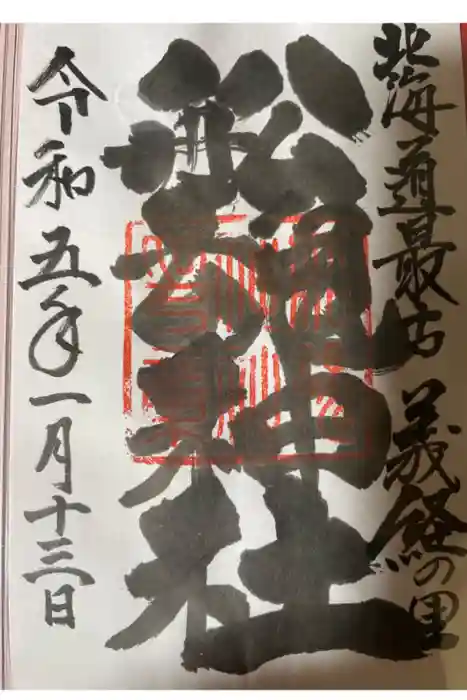 北海道最古 義経の里
舩魂神社
令和五年一月十三日